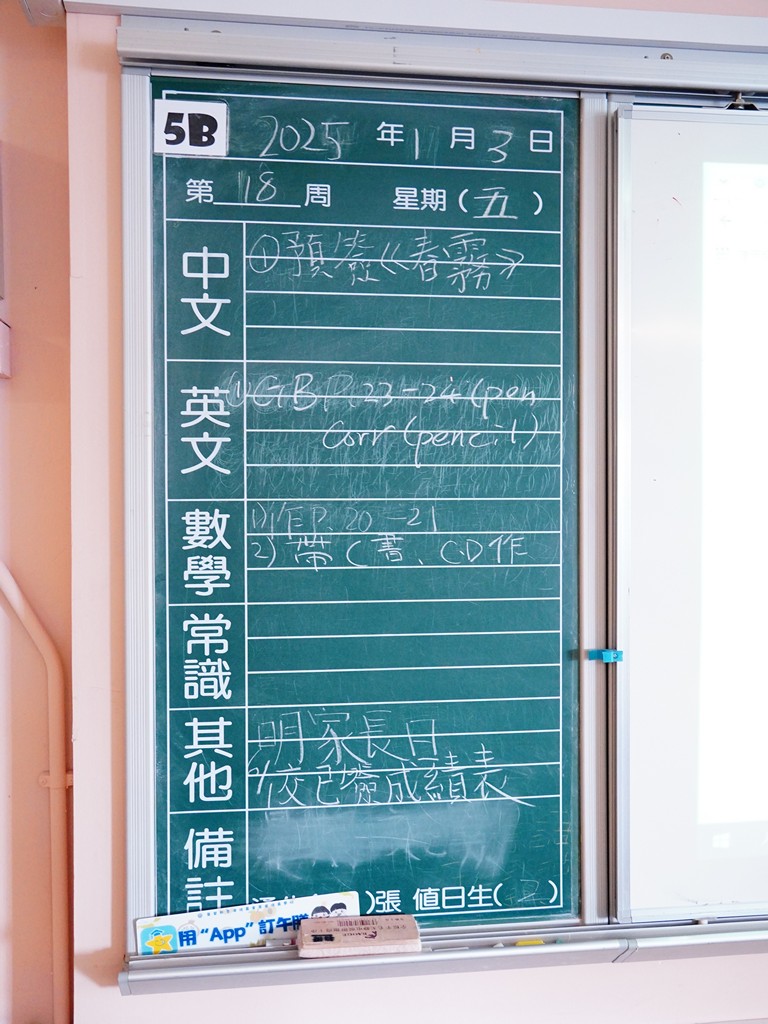 5B 2025 年 1 月 3 日
第 18 周 星期（五）
中文
①預簽《春霧》
英文
① GB P.23-24 (pen
corr (pencil)
數學
1) P.20-21
2) 帶C書、C.D作
常識
其他
明家長日
校已簽成績表
備註
)張 值日生(2)
用“App”訂午膳